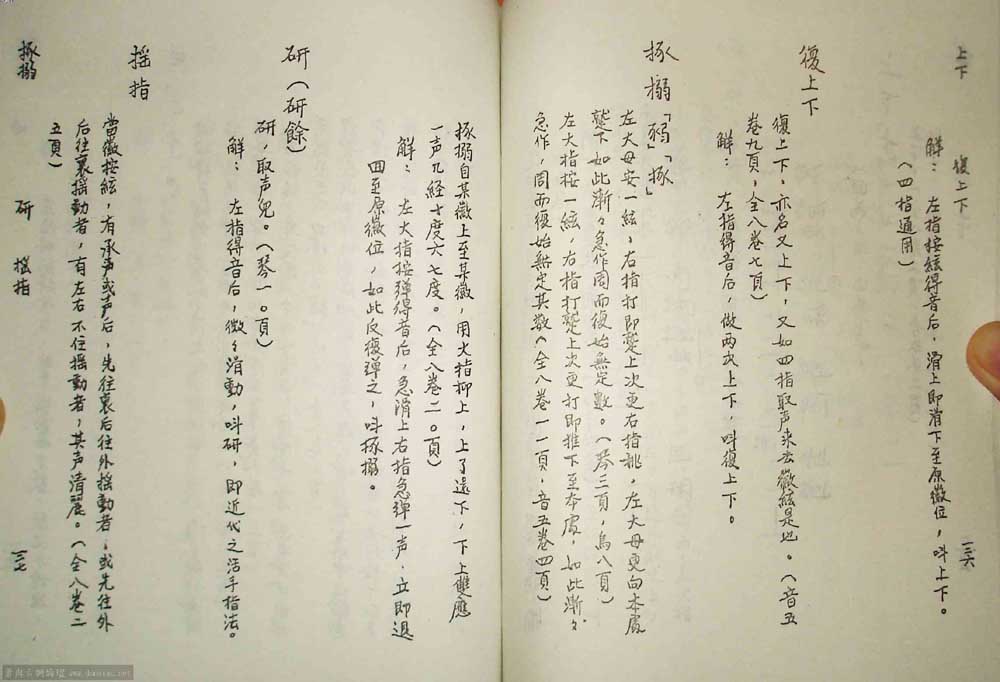 上下
復上下
一三六
解：左指按絃得音后，滑上即滑下至原徽位，叫上下。
（四指通用）
復上下
復上下，亦名又上下，又如四指取声来去徽絃是也。（音五
卷九頁，全八卷七頁）
解：左指得音后，做两次上下，叫復上下。
捼搦「弱」「捼」
左大母安一絃，右指打即蹙上次更右指挑，左大母更向本處
蹙下如此漸々急作周而復始無定數。（琴三頁，烏八頁）
左大指按一絃，右指打蹙上次更打即推下至本處，如此漸々
急作，周而復始無定其数（全八卷一一頁，音五卷四頁）
捼搦自某徽上至某徽，用大指抑上，上了還下，下上雙應
一声凡経十度六七度。（全八卷二〇頁）
解：左大指按彈得音后，急滑上右指急弹一声，立即退
四至原徽位，如此反復弹之，叫捼搦。
研（研餘）
研，取声兒。（琴一〇頁）
解：左指得音后，微々滑動，叫研，即近代之活手指法。
摇指
當徽按絃，有承声或声后，先往裏后往外摇動者，或先往外
后往裏摇動者，有左右不住摇動者，其声清麗。（全八卷二
五頁）
捼搦
研
摇指
一三七